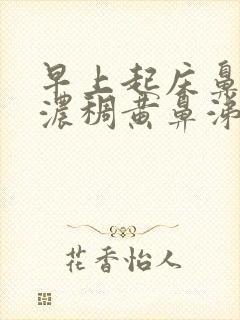 早上起床鼻
浓稠黄鼻涕
花香怡人